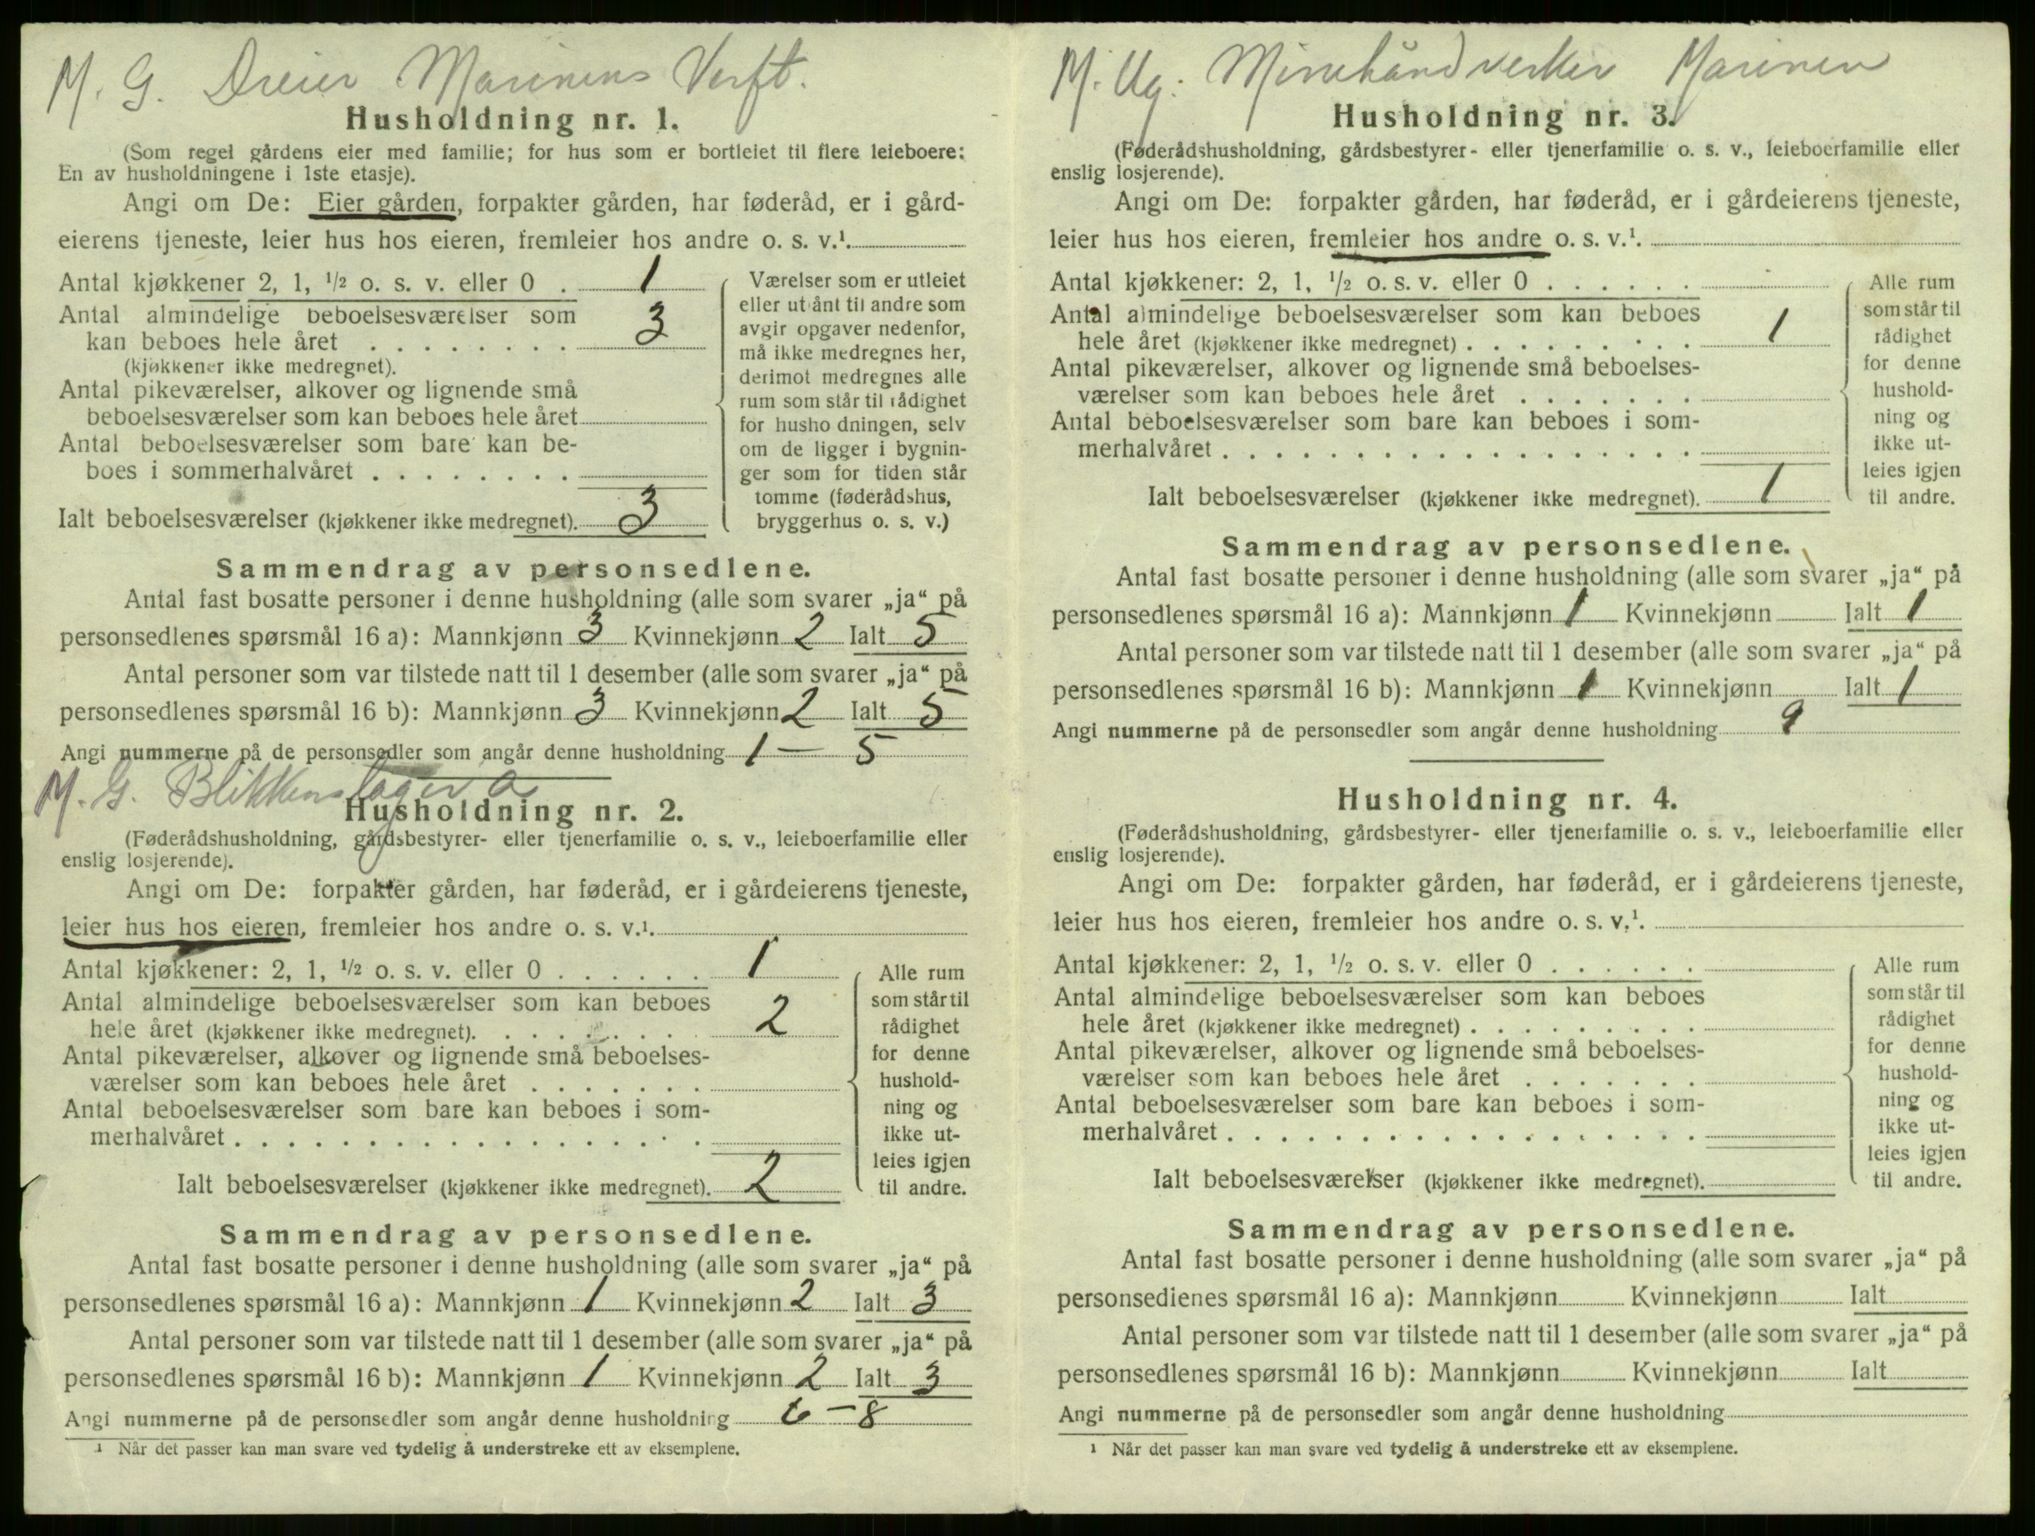 M. G. Dreier Marinens Verft.
Husholdning nr. 1.
(Som regel gårdens eier med familie; for hus som er bortleiet til flere leieboere:
En av husholdningene i 1ste etasje).
Angi om De: Eier gården, forpakter gården, har føderåd, er i gård-
eierens tjeneste, leier hus hos eieren, fremleier hos andre o. s. v.¹.
Antal kjøkkener 2, 1, ½ o. s. v. eller 0 . 1
Antal almindelige beboelsesværelser som
kan beboes hele året . . . . . . . . 3
(kjøkkener ikke medregnet).
Antal pikeværelser, alkover og lignende små
beboelsesværelser som kan beboes hele året
Antal beboelsesværelser som bare kan be-
boes i sommerhalvåret . . . . . . . .
Ialt beboelsesværelser (kjøkkener ikke medregnet). 3
Værelser som er utleiet
eller utlånt til andre som
avgir opgaver nedenfor,
må ikke medregnes her,
derimot medregnes alle
rum som står til rådighet
for husholdningen, selv
om de ligger i bygnin-
ger som for tiden står
tomme (føderådshus,
bryggerhus o. s. v.)
Sammendrag av personsedlene.
Antal fast bosatte personer i denne husholdning (alle som svarer „ja“ på
personsedlenes spørsmål 16 a): Mannkjønn 3 Kvinnekjønn 2 Ialt 5
Antal personer som var tilstede natt til 1 desember (alle som svarer „ja“ på
personsedlenes spørsmål 16 b): Mannkjønn 3 Kvinnekjønn 2 Ialt 5
Angi nummerne på de personsedler som angår denne husholdning 1 — 5
M. G. Blikkenslager a
Husholdning nr. 2.
(Føderådshusholdning, gårdsbestyrer- eller tjenerfamilie o. s. v., leieboerfamilie eller
enslig losjerende).
Angi om De: forpakter gården, har føderåd, er i gårdeierens tjeneste,
leier hus hos eieren, fremleier hos andre o. s. v.¹.
Antal kjøkkener: 2, 1, ½ o. s. v. eller 0 . . . . . . 1
Antal almindelige beboelsesværelser som kan beboes
hele året (kjøkkener ikke medregnet). . . . . . . . . 2
Antal pikeværelser, alkover og lignende små beboelses-
værelser som kan beboes hele året . . . . . . .
Antal beboelsesværelser som bare kan beboes i som-
merhalvåret . . . . . . . . . . . . . . . . . .
Ialt beboelsesværelser (kjøkkener ikke medregnet). 2
Alle rum
som står til
rådighet
for denne
hushold-
ning og
ikke ut-
leies igjen
til andre.
Sammendrag av personsedlene.
Antal fast bosatte personer i denne husholdning (alle som svarer „ja“ på
personsedlenes spørsmål 16 a): Mannkjønn 1 Kvinnekjønn 2 Ialt 3
Antal personer som var tilstede natt til 1 desember (alle som svarer „ja“ på
personsedlenes spørsmål 16 b): Mannkjønn 1 Kvinnekjønn 2 Ialt 3
Angi nummerne på de personsedler som angår denne husholdning 6 — 8
¹ Når det passer kan man svare ved tydelig å understreke ett av eksemplene.
M. Ug. Minehåndverker Marinen
Husholdning nr. 3.
(Føderådshusholdning, gårdsbestyrer- eller tjenerfamilie o. s. v., leieboerfamilie eller
enslig losjerende).
Angi om De: forpakter gården, har føderåd, er i gårdeierens tjeneste,
leier hus hos eieren, fremleier hos andre o. s. v.¹.
Antal kjøkkener: 2, 1, ½ o. s. v. eller 0 . . . . . .
Antal almindelige beboelsesværelser som kan beboes
hele året (kjøkkener ikke medregnet) . . . . . . . . . 1
Antal pikeværelser, alkover og lignende små beboelses-
værelser som kan beboes hele året . . . . . . .
Antal beboelsesværelser som bare kan beboes i som-
merhalvåret . . . . . . . . . . . . . . . . . .
Ialt beboelsesværelser (kjøkkener ikke medregnet). 1
Alle rum
som står til
rådighet
for denne
hushold-
ning og
ikke ut-
leies igjen
til andre.
Sammendrag av personsedlene.
Antal fast bosatte personer i denne husholdning (alle som svarer „ja“ på
personsedlenes spørsmål 16 a): Mannkjønn 1 Kvinnekjønn Ialt 1
Antal personer som var tilstede natt til 1 desember (alle som svarer „ja“ på
personsedlenes spørsmål 16 b): Mannkjønn 1 Kvinnekjønn Ialt 1
Angi nummerne på de personsedler som angår denne husholdning 9
Husholdning nr. 4.
(Føderådshusholdning, gårdsbestyrer- eller tjenerfamilie o. s. v., leieboerfamilie eller
enslig losjerende).
Angi om De: forpakter gården, har føderåd, er i gårdeierens tjeneste,
leier hus hos eieren, fremleier hos andre o. s. v.¹.
Antal kjøkkener: 2, 1, ½ o. s. v. eller 0 . . . . . .
Antal almindelige beboelsesværelser som kan beboes
hele året (kjøkkener ikke medregnet) . . . . . . . . .
Antal pikeværelser, alkover og lignende små beboelses-
værelser som kan beboes hele året . . . . . . .
Antal beboelsesværelser som bare kan beboes i som-
merhalvåret . . . . . . . . . . . . . . . . . .
Ialt beboelsesværelser (kjøkkener ikke medregnet).
Alle rum
som står til
rådighet
for denne
hushold-
ning og
ikke ut-
leies igjen
til andre.
Sammendrag av personsedlene.
Antal fast bosatte personer i denne husholdning (alle som svarer „ja“ på
personsedlenes spørsmål 16 a): Mannkjønn Kvinnekjønn Ialt
Antal personer som var tilstede natt til 1 desember (alle som svarer „ja“ på
personsedlenes spørsmål 16 b): Mannkjønn Kvinnekjønn Ialt
Angi nummerne på de personsedler som angår denne husholdning
¹ Når det passer kan man svare ved tydelig å understreke ett av eksemplene.